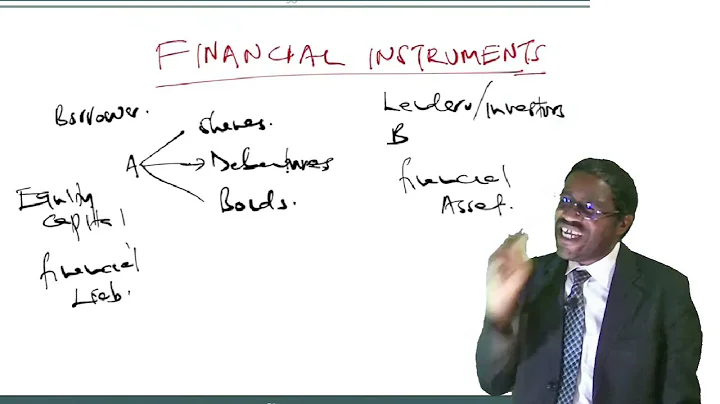 FINANCIAL INSTRUMENTS
Borrower.
A
Shares.
Debentures
Bonds.
Equity
capital
financial
Liab.
Lenders/investors
B
financial
Asset.